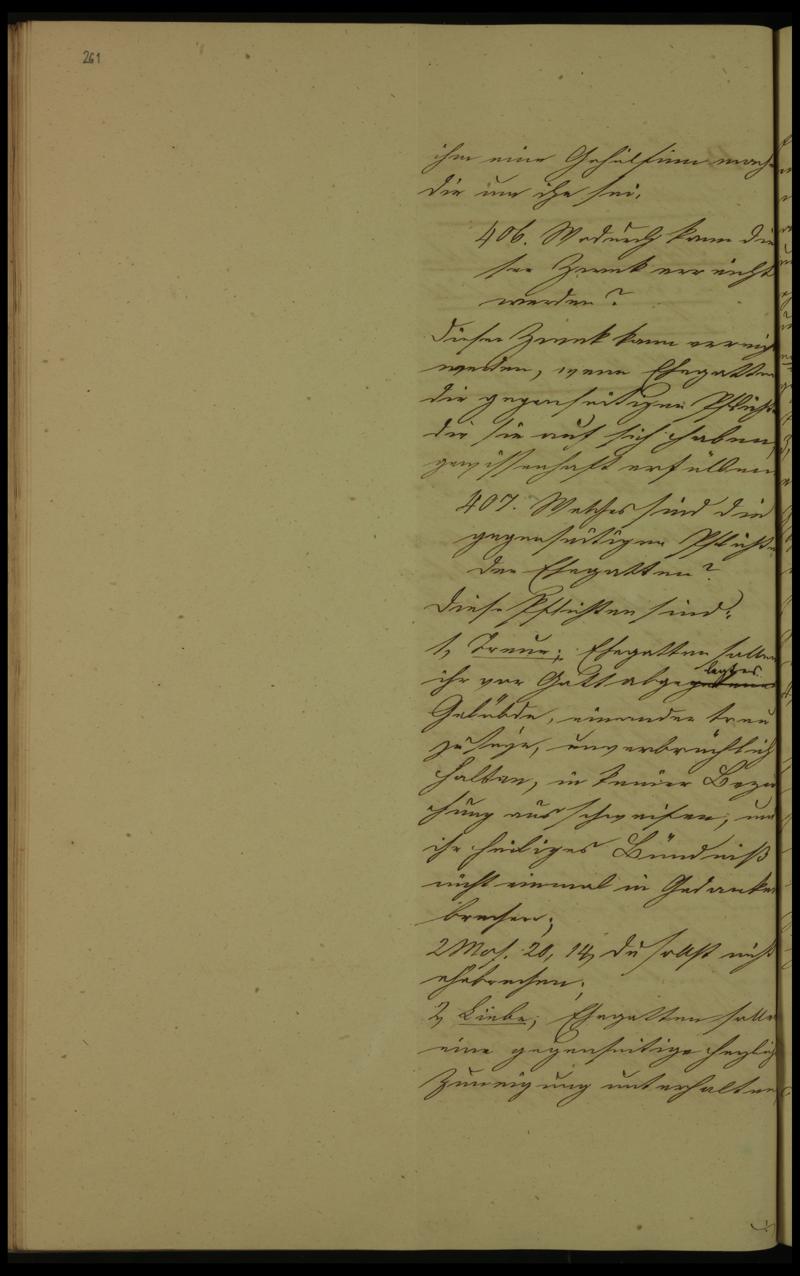 261
ihm eine Gehülfinn mach
die um ihn sei.
406. Wodurch kann die
ser Zwek erreicht
werden?
Dieser Zwek kann erreich
werden, wenn Ehegatten
die gegenseitigen Pflicht
die sie auf sich haben,
gewissenhaft erfüllen
407. Welches sind die
gegenseitigen Pflichte
der Ehegatten?
Diese Pflichten sind:
1, Treue; Ehegatten sollen
legtes
ihr vor Gott abgegebene
Gelübde, einander treu
zu seyn, unverbrüchlich
halten, in keiner Bezie
hung ausschweifen, und
ihr heiliges Bündniß
nicht einmal in Gedanken
brechen;
2 Mos. 20, 14, Du sollst nicht
ehebrechen;
2, Liebe; Ehegatten solle
eine gegenseitige herzlich
Zuneigung unterhalten,